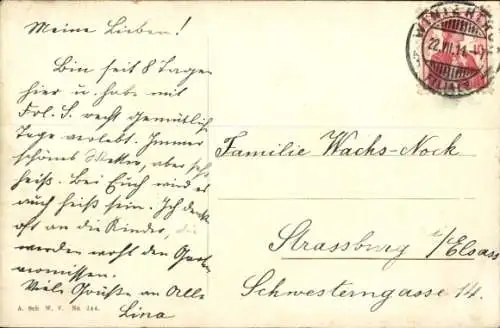 Meine Lieben!
Bin seit 8 Tagen
hier u. habe mit
Frl. S. recht gemütlich
Tage verlebt. Immer
schönes Wetter, aber sehr
heiß. Bei Euch wird es
auch heiß sein. Ich denk
oft an die Kinder, die
werden wohl den Garten
vermissen.
Viele Grüße an Alle
Lina
A. Sch W. V. No. 144.
WINTERTHUR
22.VII.11
FILIALE
Familie Wachs-Nock
Strassburg i/Elsass
Schwesterngasse 14.